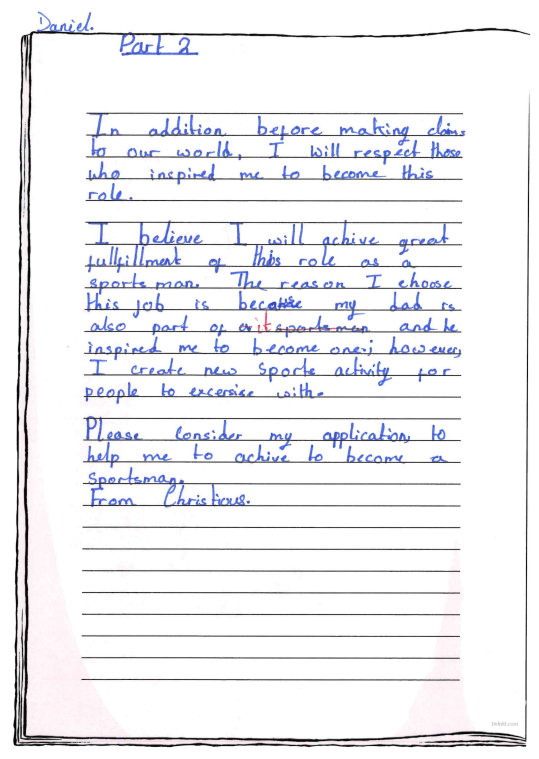 Daniel.
Part 2
In addition before making claims
to our world, I will respect those
who inspired me to become this
role.
I believe I will achive great
fullfillment of this role as a
sports man. The reason I choose
this job is because my dad is
also part of it sportsman and he
inspired me to become one; however,
I create new sports activity for
people to excersise with.
Please consider my application, to
help me to achive to become a
sportsman.
From